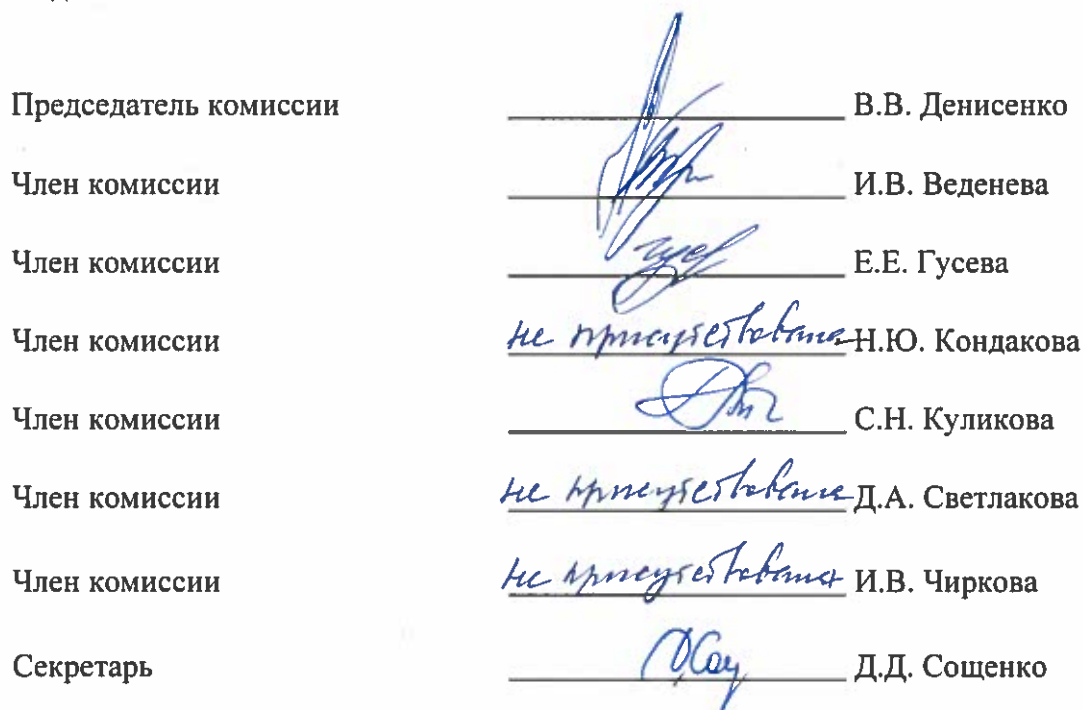 Председатель комиссии В.В. Денисенко
Член комиссии И.В. Веденева
Член комиссии Е.Е. Гусева
Член комиссии не присутствовала Н.Ю. Кондакова
Член комиссии С.Н. Куликова
Член комиссии не присутствовала Д.А. Светлакова
Член комиссии не присутствовала И.В. Чиркова
Секретарь Д.Д. Сощенко